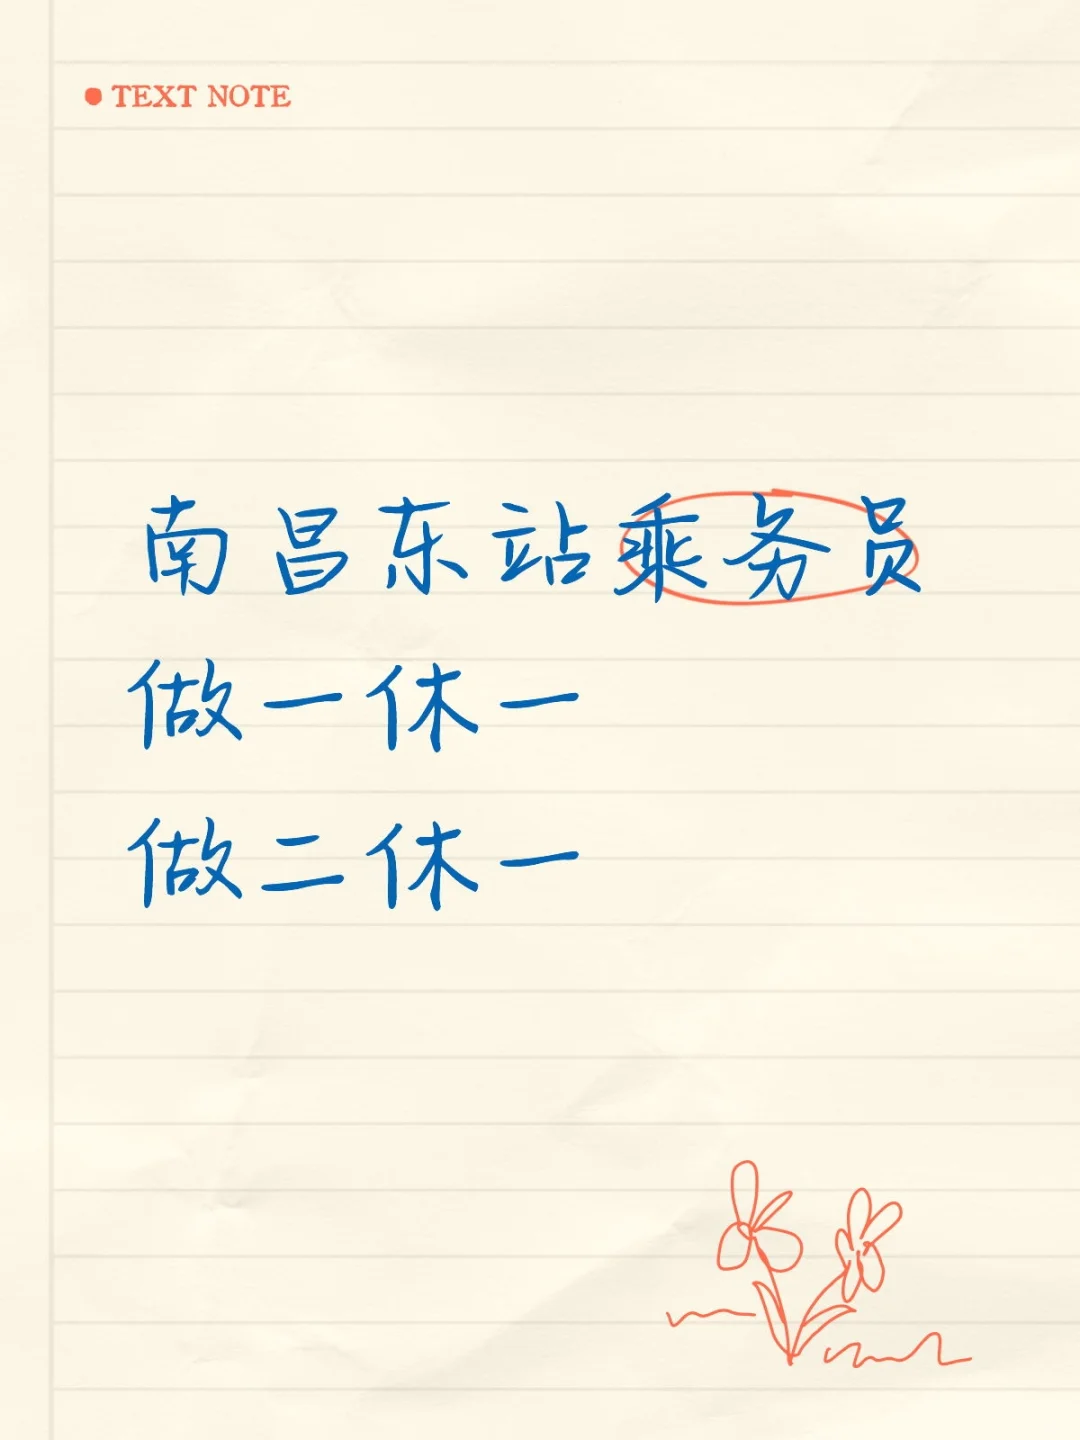 TEXT NOTE
南昌东站乘务员
做一休一
做二休一